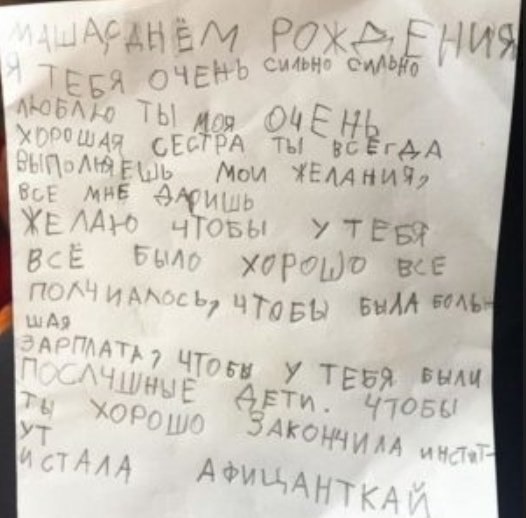 МАША, С ДНЁМ РОЖДЕНИЯ
Я ТЕБЯ ОЧЕНЬ СИЛЬНО СИЛЬНО
ЛЮБЛЮ ТЫ МОЯ ОЧЕНЬ
ХОРОШАЯ СЕСТРА ТЫ ВСЕГДА
ВЫПОЛЮЯЕШЬ МОИ ЖЕЛАНИЯ,
ВСЕ МНЕ ДАРИШЬ
ЖЕЛАЮ ЧТОБЫ У ТЕБЯ
ВСЁ БЫЛО ХОРОШО ВСЕ
ПОЛЧИАЛОСЬ, ЧТОБЫ БЫЛА БОЛЬ-
ШАЯ
ЗАРПЛАТА, ЧТОБЫ У ТЕБЯ БЫЛИ
ПОСЛУШНЫЕ ДЕТИ. ЧТОБЫ
ТЫ ХОРОШО ЗАКОНЧИЛА ИНСТИТ-
УТ
И СТАЛА АФИЦАНТКАЙ